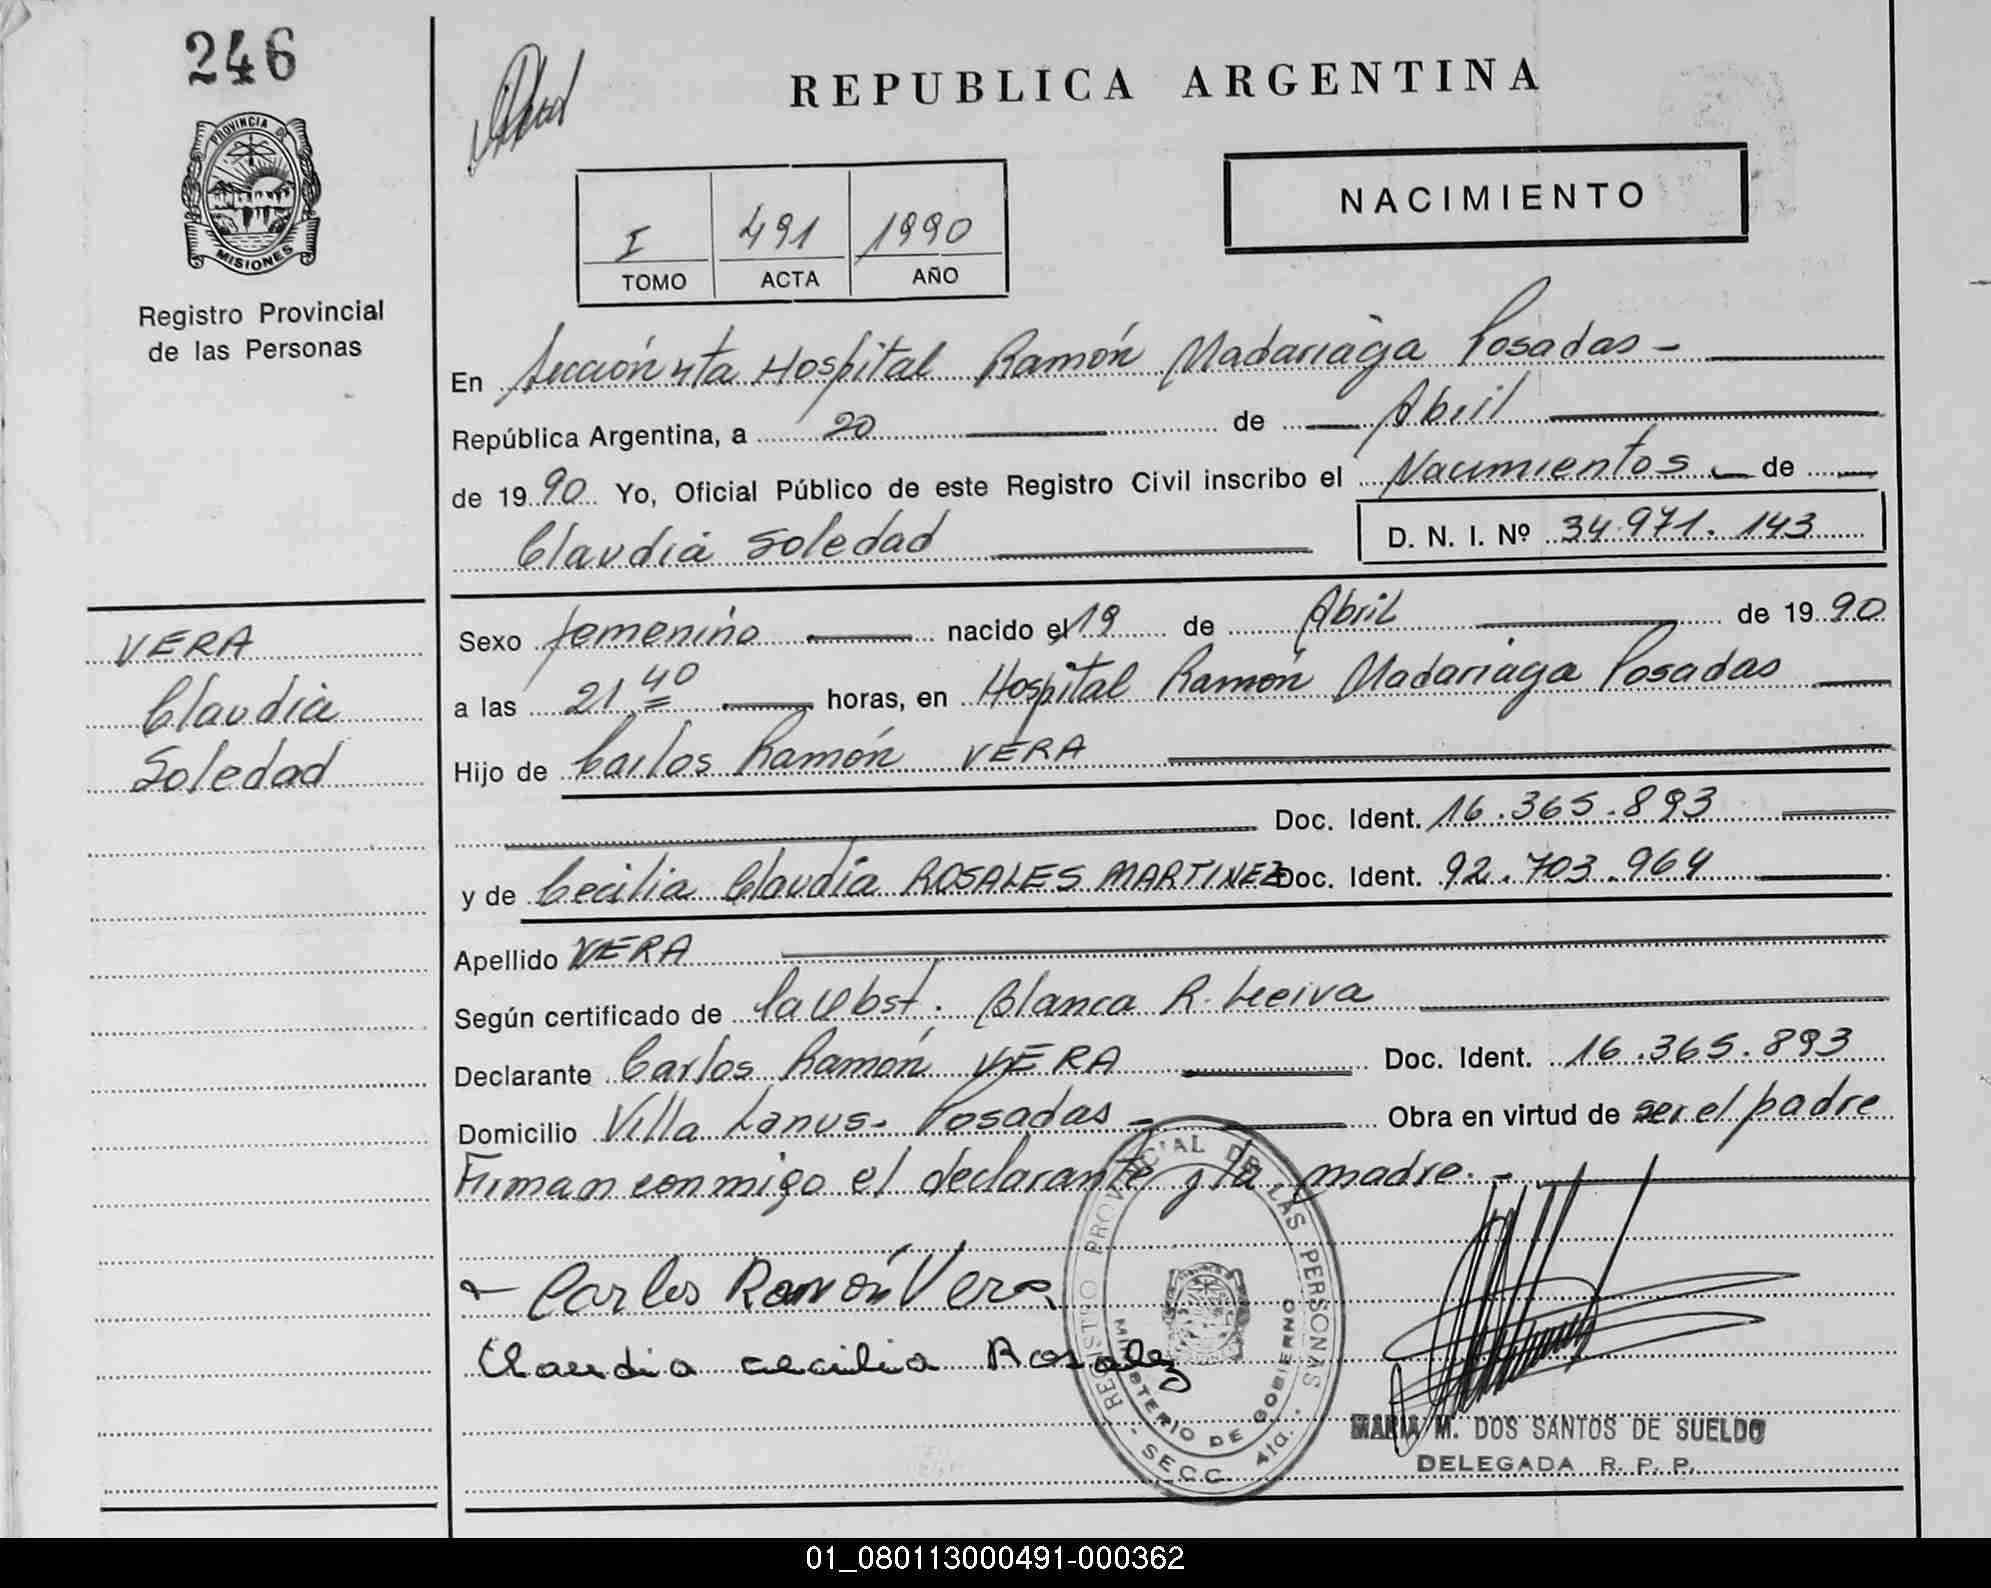 246
PROVINCIA DE
MISIONES
Registro Provincial
de las Personas
REPUBLICA ARGENTINA
NACIMIENTO
I 491 1990
TOMO ACTA AÑO
En Sección 4ta Hospital Ramón Madariaga Posadas -
República Argentina, a 20 de Abril
de 1990 Yo, Oficial Público de este Registro Civil inscribo el Nacimientos de
Claudia Soledad D. N. I. Nº 34.971.143
VERA
Claudia
Soledad
Sexo femenino nacido el 19 de Abril de 1990
a las 21 40 horas, en Hospital Ramón Madariaga Posadas
Hijo de Carlos Ramón VERA
Doc. Ident. 16.365.893
y de Cecilia Claudia ROSALES MARTINEZ Doc. Ident. 92.703.964
Apellido VERA
Según certificado de la Obst. Blanca R. Leiva
Declarante Carlos Ramón VERA Doc. Ident. 16.365.893
Domicilio Villa Lanus - Posadas - Obra en virtud de ser el padre
Firman conmigo el declarante y la madre. -
Carlos Ramón Vera
Claudia cecilia Rosalez
REGISTRO PROVINCIAL DE LAS PERSONAS
MINISTERIO DE GOBIERNO
- SECC. 4ta. -
MARIA M. DOS SANTOS DE SUELDO
DELEGADA R. P. P.
01_080113000491-000362